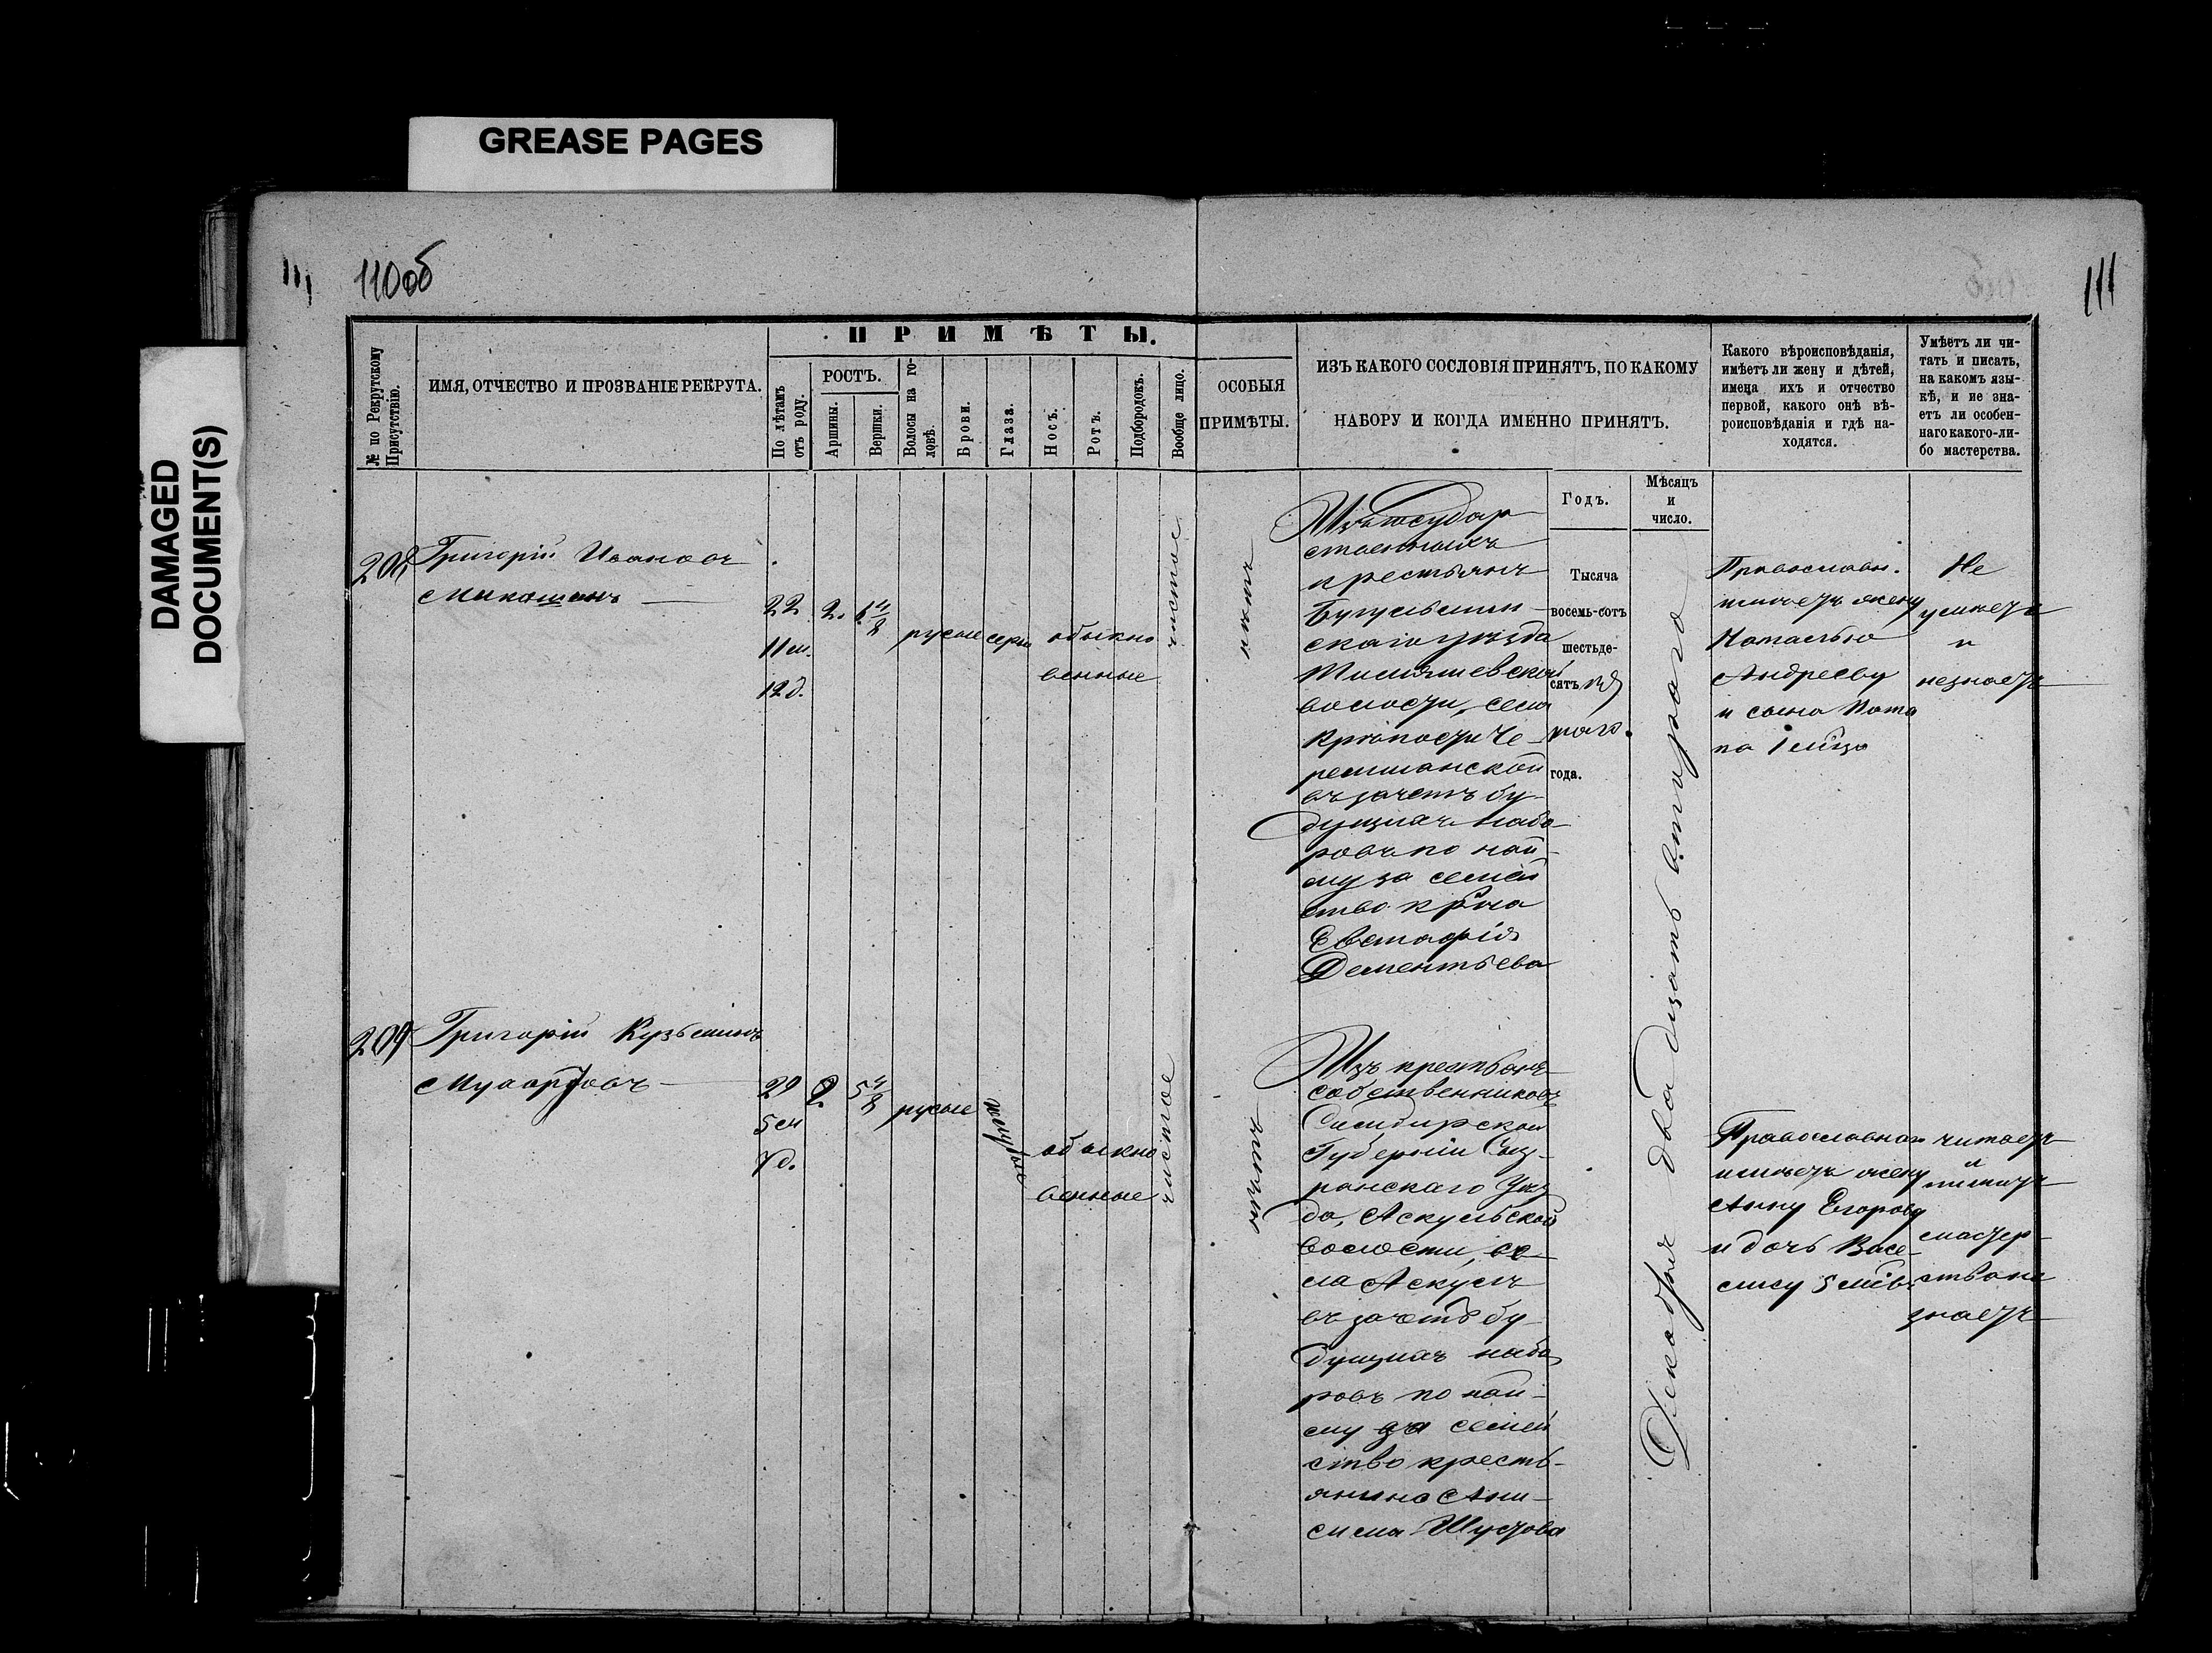 GREASE PAGES
DAMAGED
DOCUMENT(S)
110об
111
ПРИМѢТЫ.
№ по Рекрутскому
Присутствію.
ИМЯ, ОТЧЕСТВО И ПРОЗВАНІЕ РЕКРУТА.
По лѣтамъ
отъ роду.
РОСТЪ.
Аршины.
Вершки.
Волосы на го-
ловѣ.
Брови.
Глаза.
Носъ.
Ротъ.
Подбородокъ.
Вообще лицо.
ОСОБЫЯ
ПРИМѢТЫ.
ИЗЪ КАКОГО СОСЛОВІЯ ПРИНЯТЪ, ПО КАКОМУ
НАБОРУ И КОГДА ИМЕННО ПРИНЯТЪ.
Годъ.
Мѣсяцъ
и
число.
Какого вѣроисповѣданія,
имѣетъ ли жену и дѣтей,
имена ихъ и отчество
первой, какого онѣ вѣ-
роисповѣданія и гдѣ на-
ходятся.
Умѣетъ ли чи-
тать и писать,
на какомъ язы-
кѣ, и не зна-
етъ ли особен-
наго какого-ли-
бо мастерства.
208
Григорій Ивановъ
22
11 м.
12 д.
2.
6 4/8
русые
серы
обыкно
венные
чистое
нѣтъ
Изъ государ
ственныхъ
крестьянъ
Бугульмин-
скаго уѣзда
волости, села
Крѣпости Че-
ремшанской
въ зачетъ бу-
дущихъ набо-
ровъ по най-
му за семей
ство кр-на
Евстафія
Дементьева
Тысяча
восемь-сотъ
шестьде-
сятъ
года.
Декабря двадцать втораго
Православн.
имѣетъ жену
Наталью
Андрееву
и сына Пота
па 1 мѣс-ца
Не
умѣетъ
и
незнаетъ
209
Григорій Кузьминъ
29
5 м
7 д.
2
5 4/8
русые
желтые
обыкно
венные
чистое
нѣтъ
Изъ крестьянъ
собственниковъ
Симбирской
Губерніи Сыз-
ранскаго Уѣз
да, Аскульской
волости, се-
ла Аскулъ
въ зачетъ бу-
дущихъ набо
ровъ по най-
му за семей
ство кресть-
янина Ани-
сима Шустова
Православнаго
имѣетъ жену
Анну Егорову
и дочь Васи-
лису 5 лѣтъ
читаетъ
и
пишетъ
мастер-
ства не
знаетъ